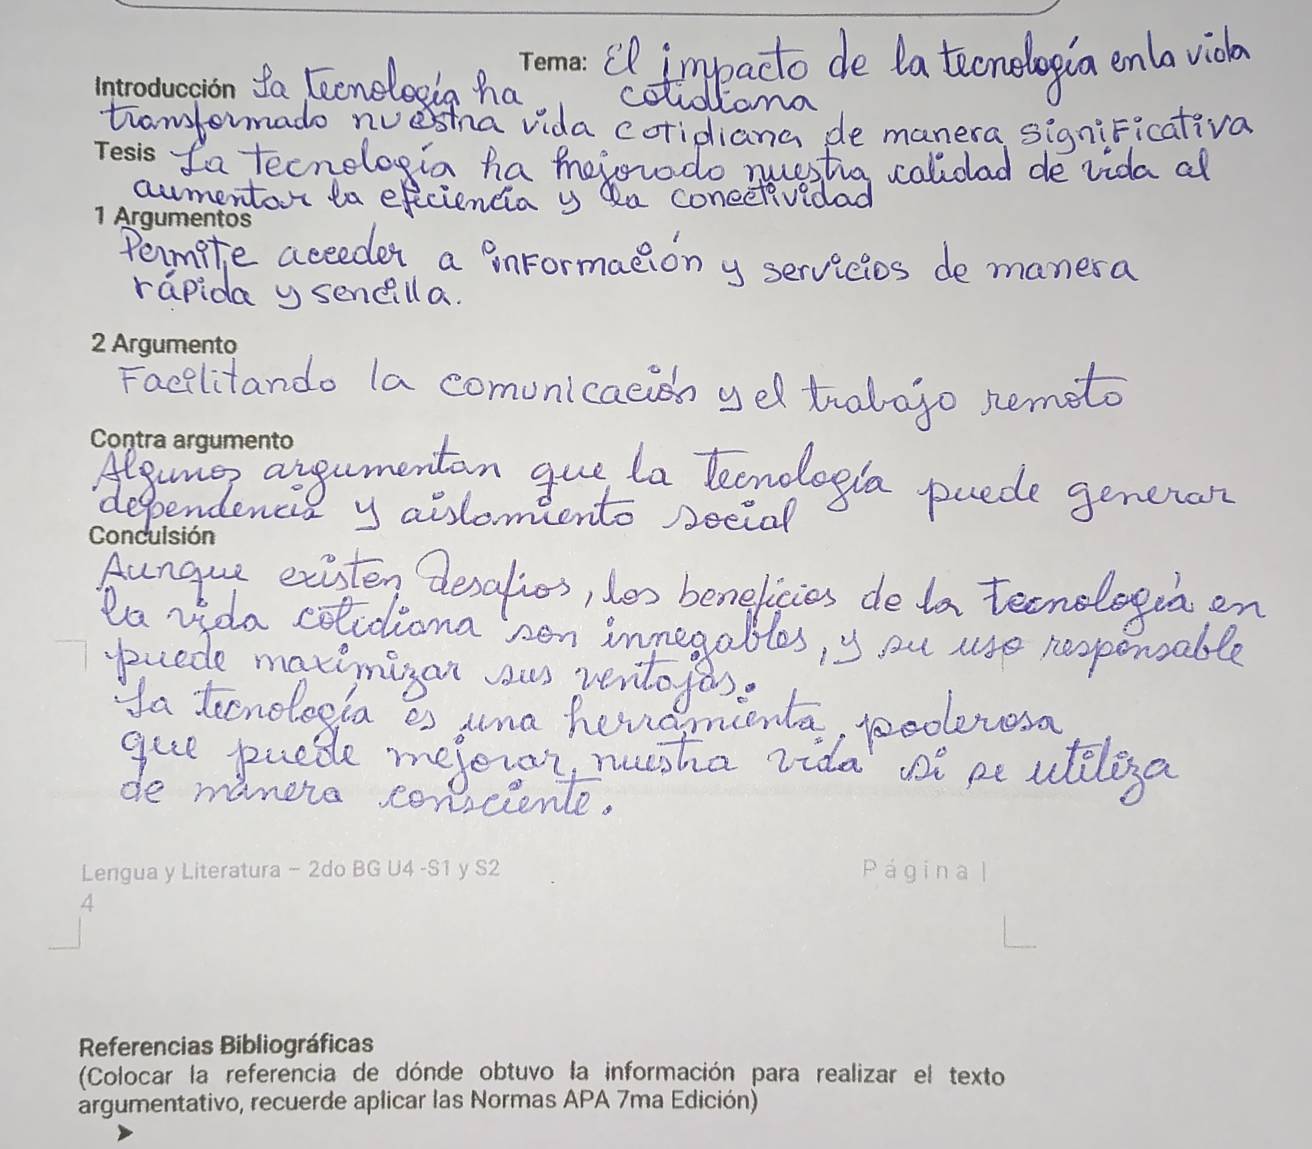 Tema: El impacto de la tecnología en la vida
cotidiana
Introducción La Tecnología ha
transformado nuestra vida cotidiana de manera significativa
Tesis La tecnología ha mejorado nuestra calidad de vida al
aumentar la eficiencia y la conectividad
1 Argumentos
Permite acceder a información y servicios de manera
rápida y sencilla.
2 Argumento
Facilitando la comunicación y el trabajo remoto
Contra argumento
Algunos argumentan que la Tecnología puede generar
dependencia y aislamiento social
Conculsión
Aunque existen desafios, los beneficios de la tecnología en
la vida cotidiana son innegables, y su uso responsable
puede maximizar sus ventajas.
La tecnología es una herramienta poderosa
que puede mejorar nuestra vida si se utiliza
de manera consciente.
Lengua y Literatura – 2do BG U4 -S1 y S2
Página |
4
Referencias Bibliográficas
(Colocar la referencia de dónde obtuvo la información para realizar el texto
argumentativo, recuerde aplicar las Normas APA 7ma Edición)